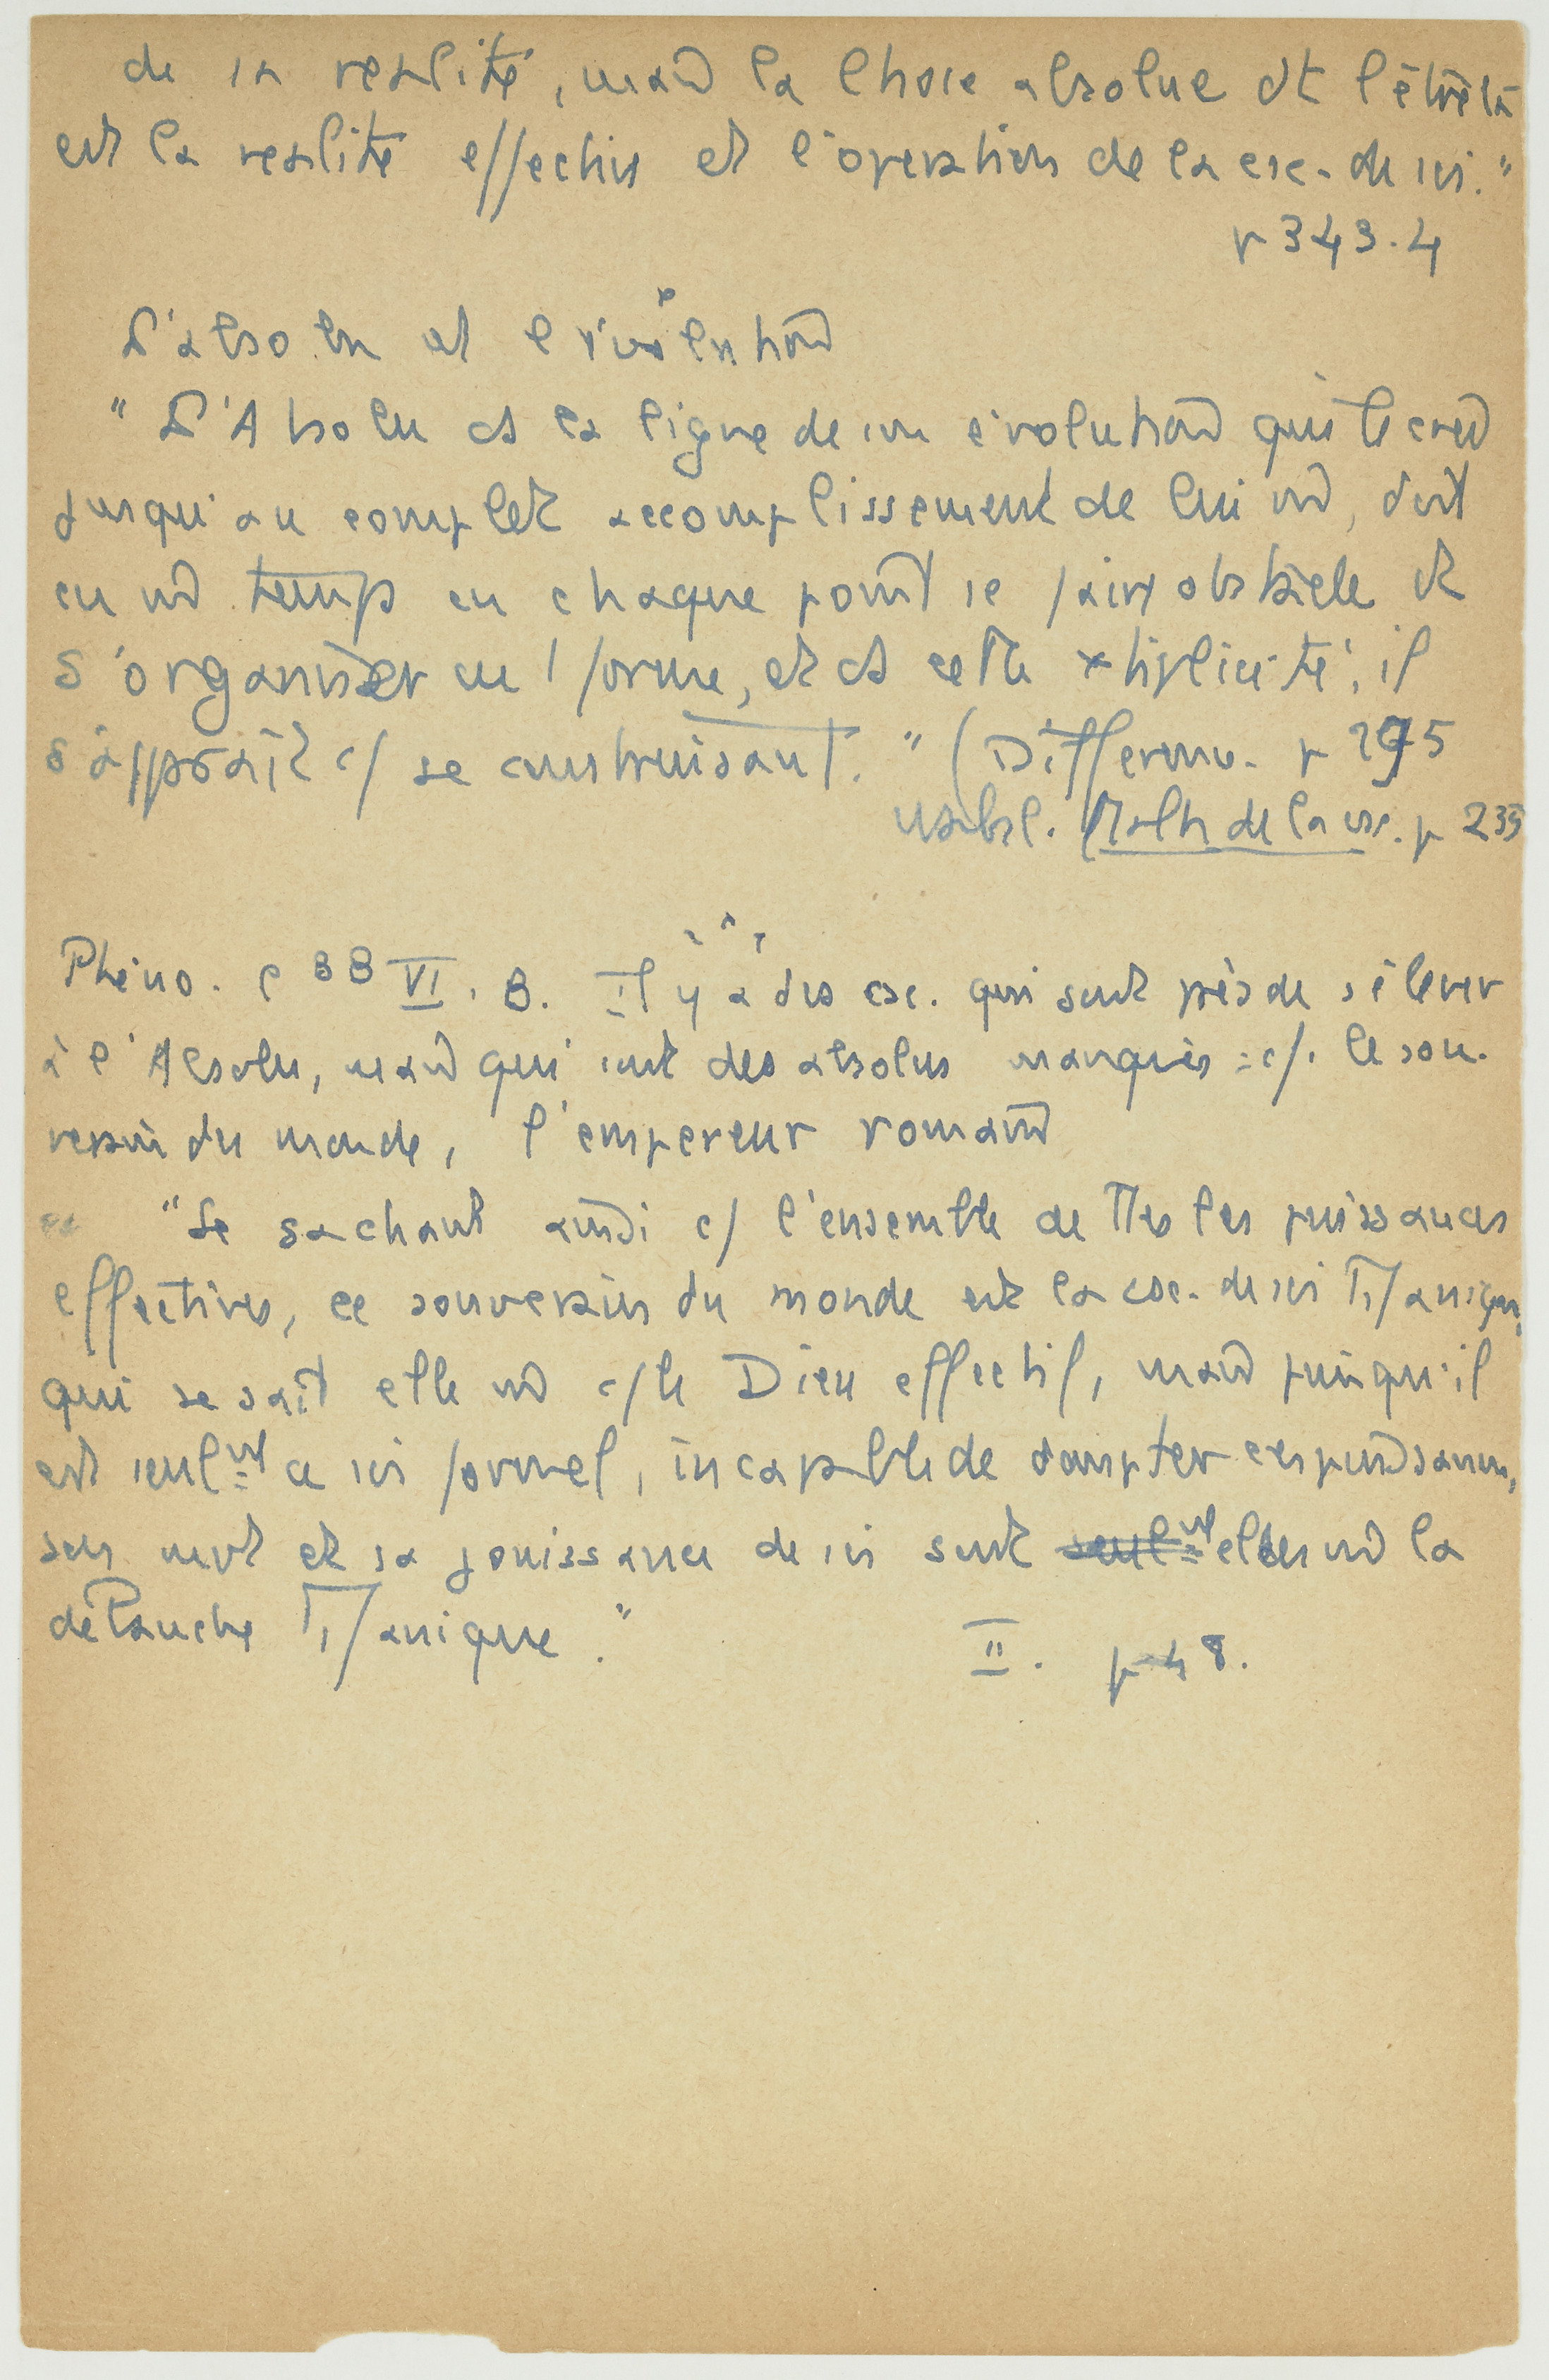 de sa realité, mais la Chose absolue dt l'être là
est la realité effective et l'operation de la csc. de soi."
p 343.4
L'absolu et l'évolution
"L'Absolu ds la ligne de son évolution qu'il crée
jusqu'au complet accomplissement de lui m̂, doit
en m̂ temps en chaque point se faire obstacle et
s'organiser en 1 forme, et ds cette xtiplicité, il
s'apparaît c/ se construisant." (Difference. p 295
Malh de la csc. p 239
Phéno. C BB VI. B. Il y a des csc. qui sont près de s'élever
à l'Absolu, mais qui sont des absolus manqués = c/. le sou-
verain du monde, l'empereur romain
"Se sachant ainsi c/ l'ensemble de ttes les puissances
effectives, ce souverain du monde est la csc. de soi Ti/anique,
qui se sait elle m̂ c/ le Dieu effectif, mais puisqu'il
est seulmt ce soi formel, incapable de dompter ces puissances,
son mvt et sa jouissance de soi sont seulmt elles m̂ la
débauche Ti/anique."
II. p 48.